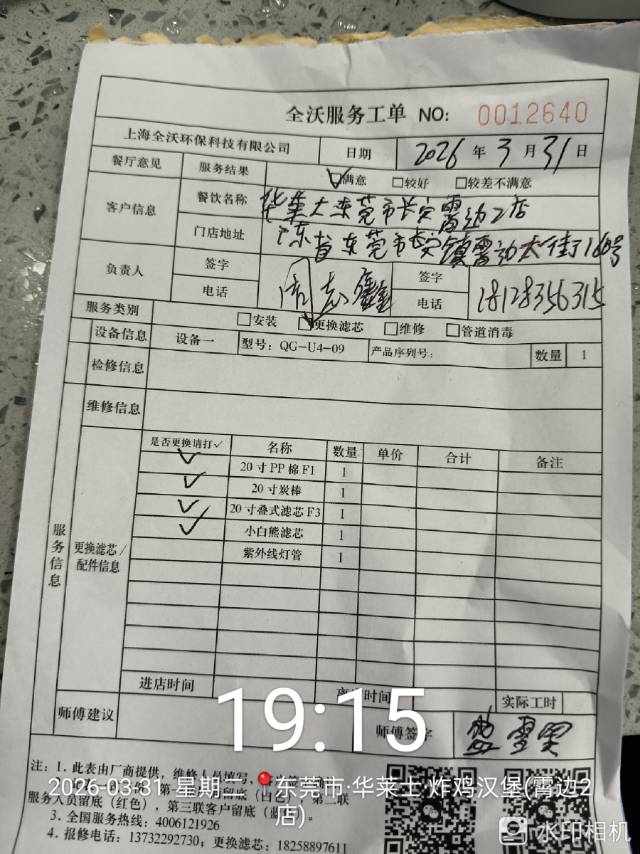 全沃服务工单 NO: 0012640
上海全沃环保科技有限公司 日期 2026 年 3 月 31 日
餐厅意见 服务结果 ☑满意 □较好 □较差不满意
客户信息 餐饮名称 华莱士东莞市长安霄边2店
门店地址 广东省东莞市长安镇霄边大街
负责人 签字 签字
电话 电话 18128356315
服务类别 □安装 ☑更换滤芯 □维修 □管道消毒
设备信息 设备一 型号: QG-U4-09 产品序列号: 数量 1
检修信息
维修信息
服务信息
更换滤芯/配件信息
是否更换请打✓ 名称 数量 单价 合计 备注
✓ 20寸PP棉F1 1
✓ 20寸炭棒 1
✓ 20寸叠式滤芯F3 1
✓ 小白熊滤芯 1
紫外线灯管 1
进店时间 时间 实际工时
师傅建议 师傅签字
19:15
注: 1. 此表由厂商提供, 维修人员填写,
2026-03-31 星期二 东莞市·华莱士·炸鸡汉堡(霄边2店)
服务人员留底(红色), 第三联客户留底
3. 全国服务热线: 4006121926
4. 报修电话: 13732292730; 更换滤芯: 18258897611
水印相机